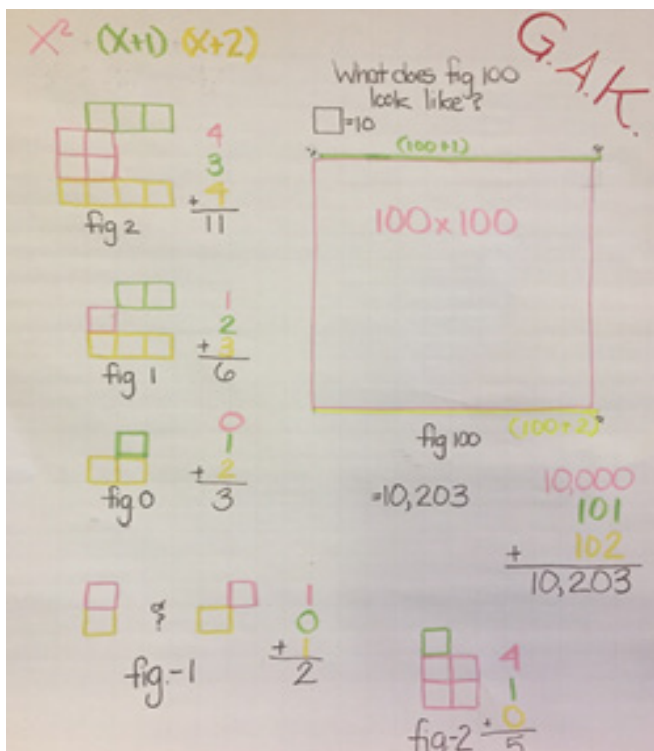 x² (x+1) (x+2)
G.A.K.
What does fig 100
look like?
=10
(100+1)
100x100
fig 100
(100+2)
=10,203
10,000
101
+ 102
10,203
4
3
+ 4
11
fig 2
1
2
+ 3
6
fig 1
0
1
+ 2
3
fig 0
&
1
0
+ 1
2
fig.-1
4
1
+ 0
5
fig-2